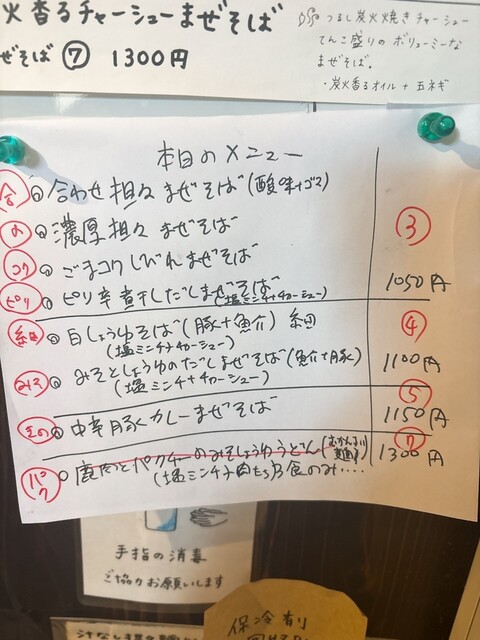 火香るチャーシューまぜそば
ぜそば ⑦ 1300円
つるし炭火焼きチャーシュー
てんこ盛りのボリューミーな
まぜそば。
・炭火香るオイル+玉ネギ
本日のメニュー
合 合わせ担々まぜそば(酸味+ゴマ)
の 濃厚担々まぜそば ③
コク ごまコクしびれまぜそば
ピリ ピリ辛煮干しだしまぜそば 1050円
(塩ミンチ+チャーシュー)
細 白しょうゆそば(豚+魚介)細 ④
(塩ミンチ+チャーシュー)
みそ みそとしょうゆのだしまぜそば(魚介+豚) 1100円
(塩ミンチ+チャーシュー)
⑤
その 中辛豚カレーまぜそば 1150円
⑦
パク 鹿肉とパクチーのみそしょうゆうどん 1300円
(塩ミンチ
手指の消毒
ご協力お願いします
保冷剤